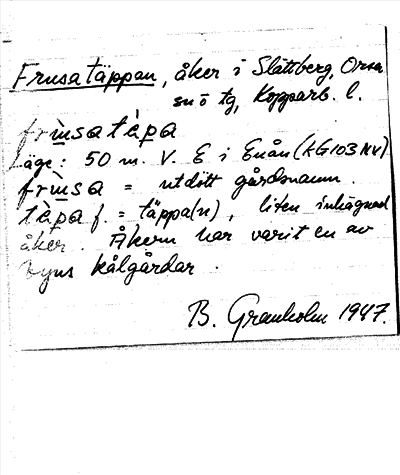 Frusatäppan, åker i Slättberg, Orsa
sn o tg, Kopparb. l.
frùsatèpa
Läge: 50 m. V. E i Enån (AG103NV)
frùsa = utdött gårdsnamn.
tèpa f. = täppa(n), liten inhägnad
åker. Åkern har varit en av
byns kålgårdar.
B. Granholm 1947.